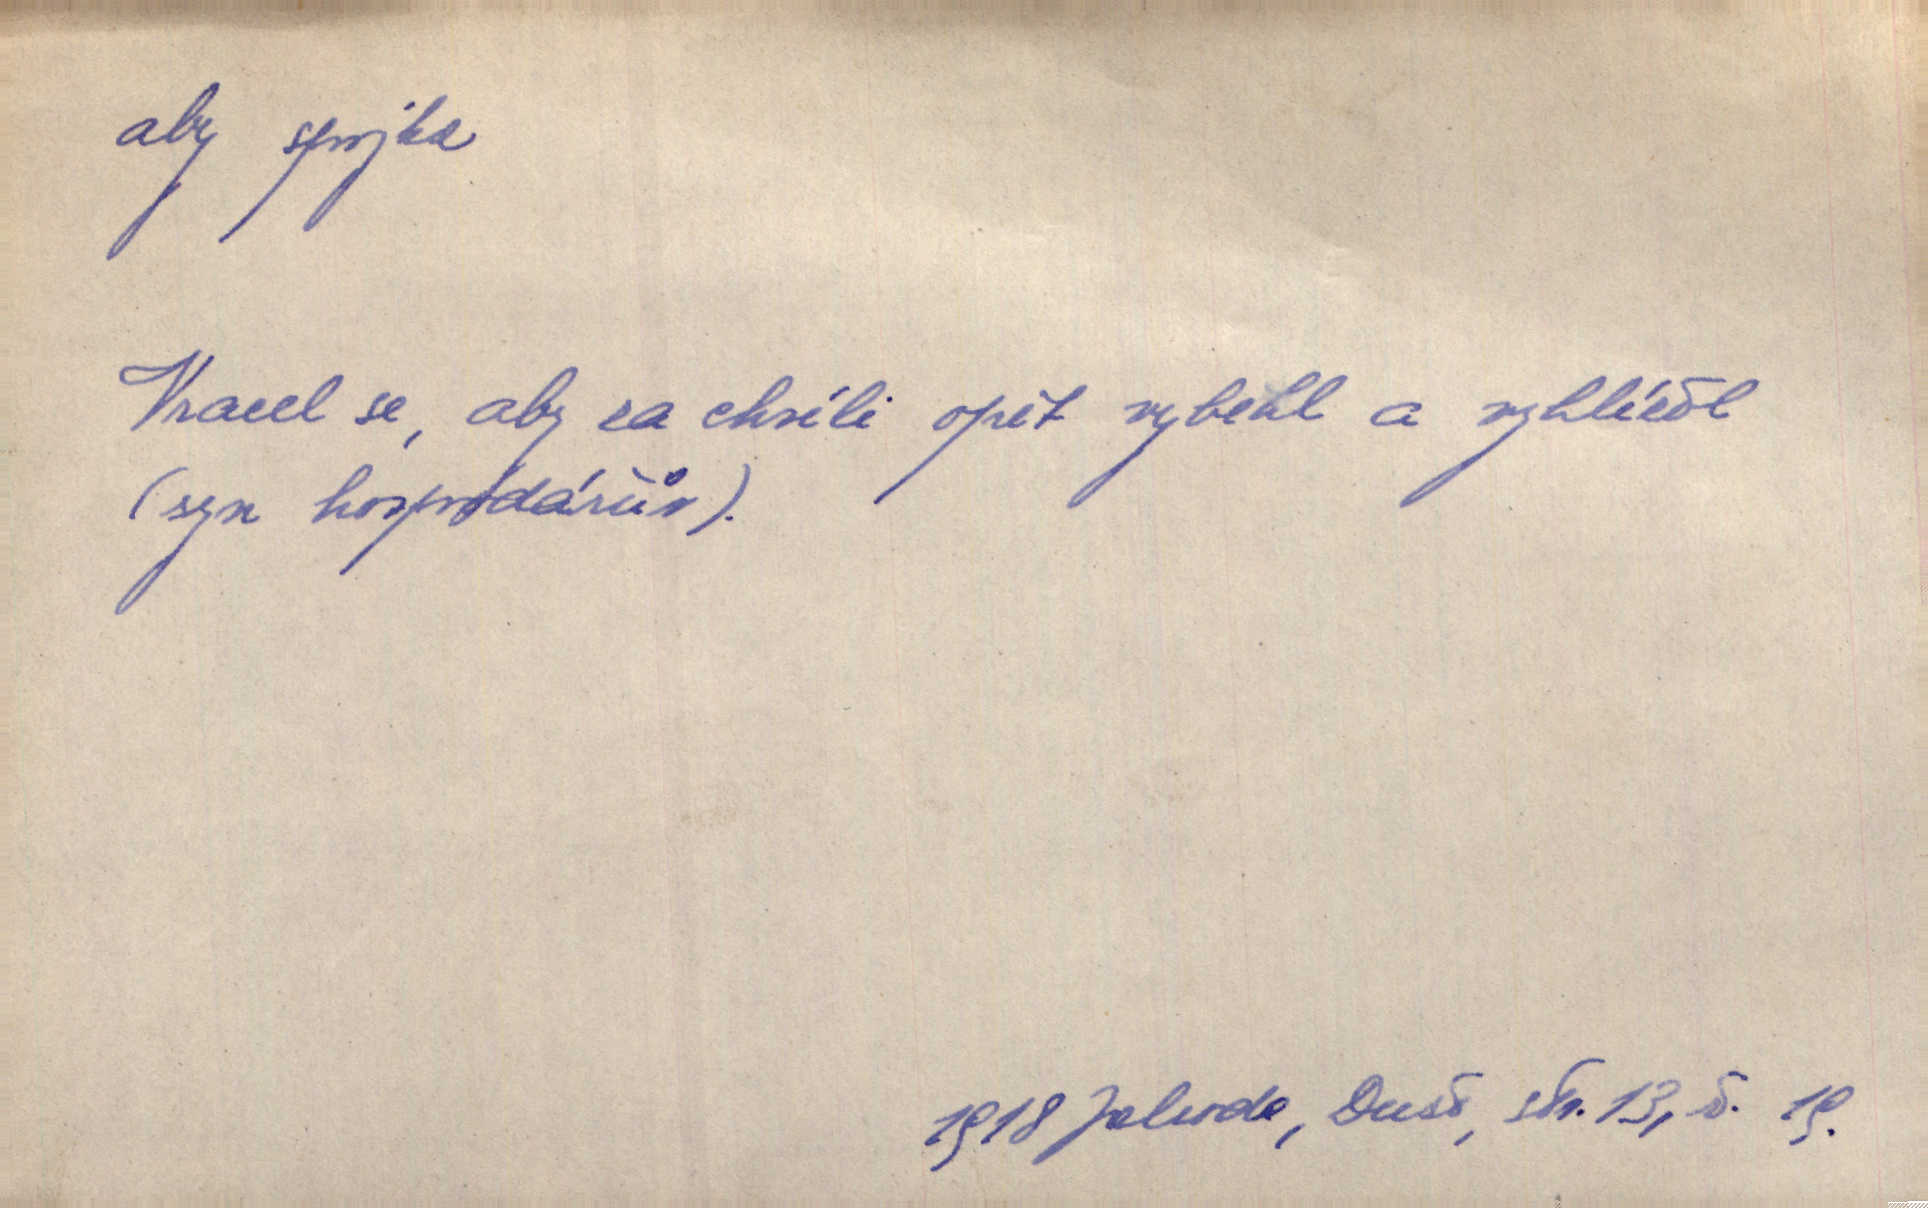 aby spojka
Vracel se, aby za chvíli opět vyběhl a vyhlížel
(syn hospodářův).
1918 Jahoda, Duše, str. 13, ř. 19.